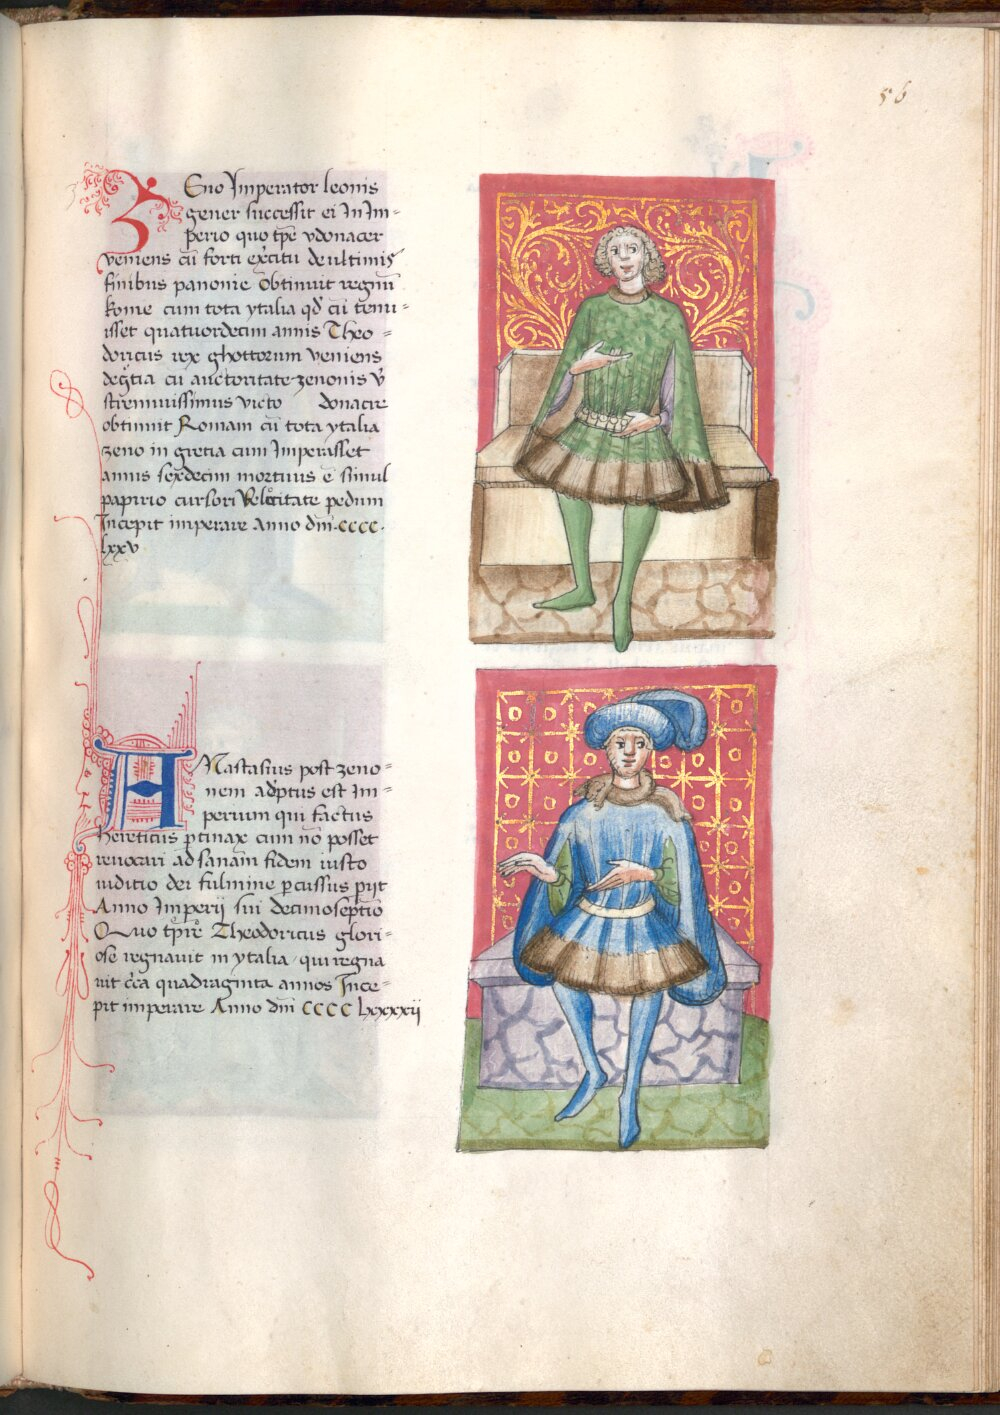 56
ZEno Imperator leonis
gener successit ei In Im-
perio quo tpe vdonacer
veniens cu forti exercitu de ultimis
finibus panonie obtinuit regnu
Rome cum tota ytalia qd cu tenu-
isset quatuordecim annis Theo-
doricus rex ghottorum veniens
de gtia cu auctoritate zenonis v
strennuissimus victo donacre
obtinuit Romam cu tota ytalia
zeno in gretia cum Imperasset
annis sexdecim mortuus e simul
papirio cursori velocitate pedum
Incepit imperare Anno dni CCCC
lxxv
ANastasius post zeno-
nem adeptus est Im-
perium qui factus
hereticus ptinax cum no posset
revocari ad sanam fidem iusto
iuditio dei fulmine pcussus piit
Anno Imperij sui decimoseptio
Quo tpre Theodoricus glori-
ose regnavit in ytalia qui regna
vit cca quadraginta annos Ince-
pit imperare Anno dni CCCC lxxxxij